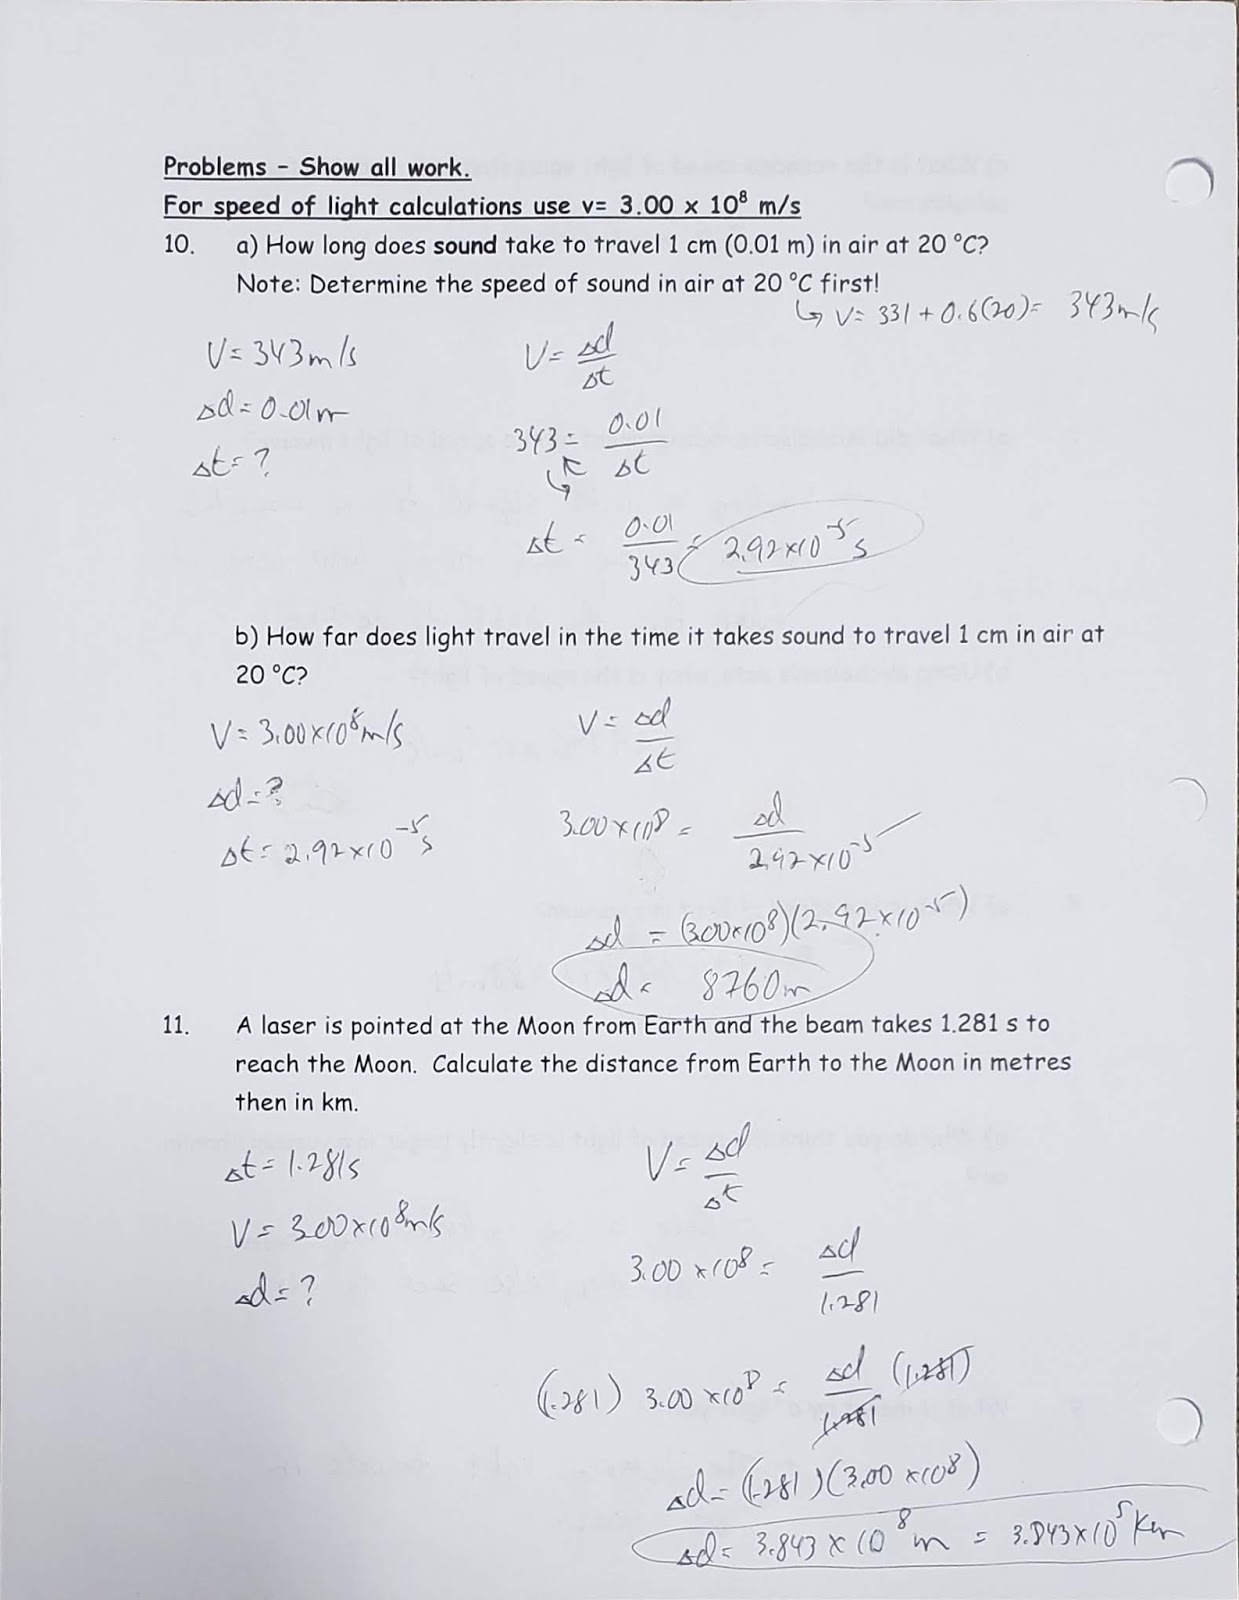 Problems - Show all work.
For speed of light calculations use v= 3.00 x 10⁸ m/s
10. a) How long does sound take to travel 1 cm (0.01 m) in air at 20 °C?
Note: Determine the speed of sound in air at 20 °C first!
↳ V= 331 + 0.6(20)= 343m/s
V= 343m/s
V= Δd/Δt
Δd= 0.01m
343 = 0.01/Δt
Δt= ?
Δt = 0.01/343 = 2.92x10⁻⁵ s
b) How far does light travel in the time it takes sound to travel 1 cm in air at
20 °C?
V= 3.00x10⁸m/s
V= Δd/Δt
Δd=?
3.00x10⁸ = Δd/2.92x10⁻⁵
Δt= 2.92x10⁻⁵s
Δd = (3.00x10⁸)(2.92x10⁻⁵)
Δd= 8760m
11. A laser is pointed at the Moon from Earth and the beam takes 1.281 s to
reach the Moon. Calculate the distance from Earth to the Moon in metres
then in km.
Δt= 1.281s
V= Δd/Δt
V= 3.00x10⁸m/s
3.00 x10⁸ = Δd/1.281
Δd= ?
(1.281) 3.00 x10⁸ = Δd/1.281 (1.281)
Δd= (1.281)(3.00 x10⁸)
Δd= 3.843 x 10⁸ m = 3.843x10⁵ km